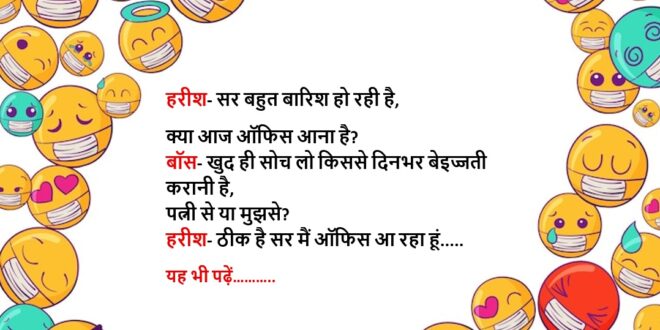 हरीश- सर बहुत बारिश हो रही है,
क्या आज ऑफिस आना है?
बॉस- खुद ही सोच लो किससे दिनभर बेइज्जती
करानी है,
पत्नी से या मुझसे?
हरीश- ठीक है सर मैं ऑफिस आ रहा हूं.....
यह भी पढ़ें………..